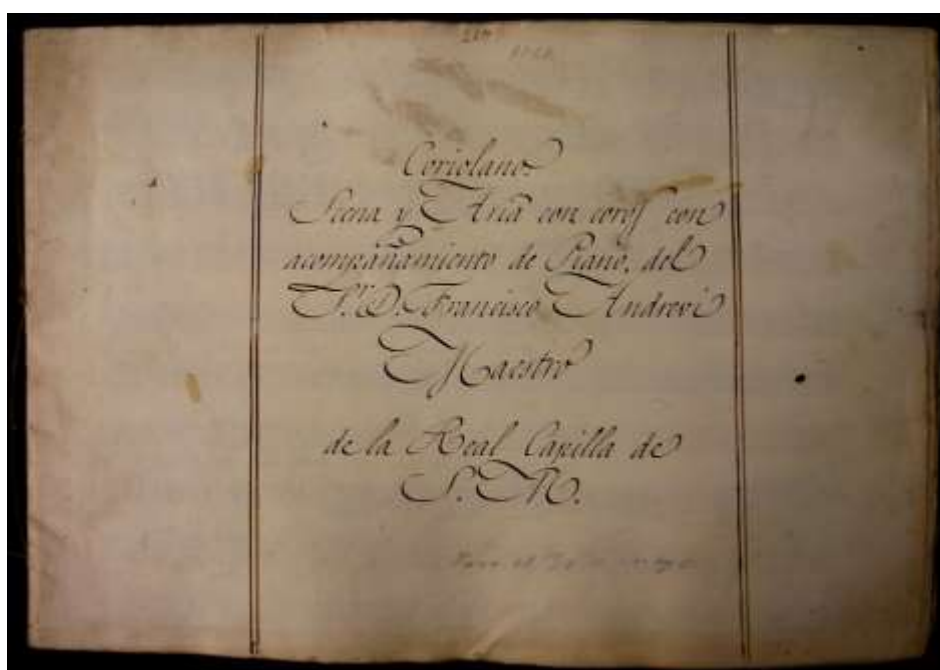 Coriolano
Scena y Aria con coros con
acompañamiento de Piano, del
S.r D. Francisco Andreví
Maestro
de la Real Capilla de
S. M.